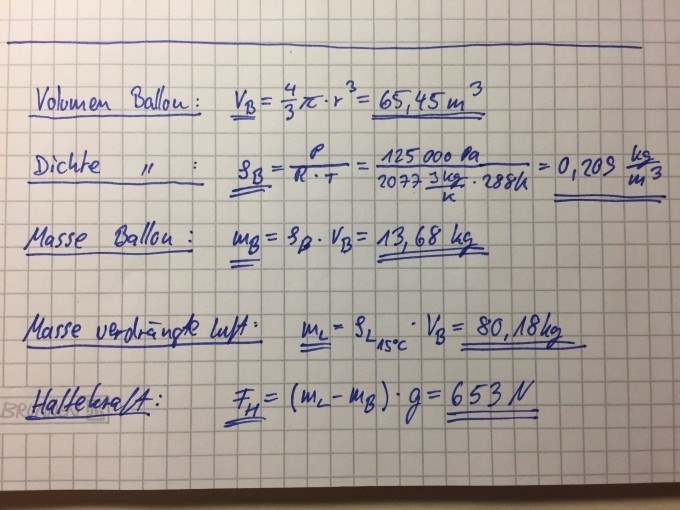 Volumen Ballon: V_B = 4/3 π · r³ = 65,45 m³
Dichte " : ρ_B = P/(R · T) = 125 000 Pa/(2077 J kg/K · 288K) = 0,209 kg/m³
Masse Ballon: m_B = ρ_B · V_B = 13,68 kg
Masse verdrängte Luft: m_L = ρ_L 15°C · V_B = 80,18 kg
Haltekraft: F_H = (m_L - m_B) · g = 653 N